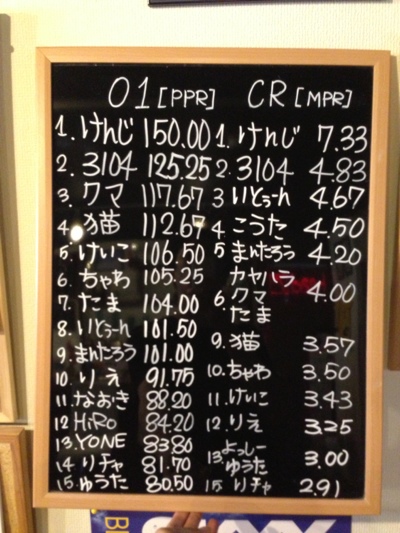 01 [PPR] CR [MPR]
1. けんじ 150.00 1. けんじ 7.33
2. 3104 125.25 2. 3104 4.83
3. クマ 117.67 3 いとぅーん 4.67
4. 猫 112.67 4 こうた 4.50
5. けいこ 106.50 5 まんたろう 4.20
6. ちゃわ 105.25 カヤハラ
7. たま 104.00 6. クマ 4.00
たま
8. いとぅーん 101.50
9. まんたろう 101.00 9. 猫 3.57
10. りえ 91.75 10. ちゃわ 3.50
11. なおき 88.20 11. けいこ 3.43
12 HiRO 84.20 12. りえ 3.25
13. YONE 83.80 よっしー
14 りチャ 81.70 13. ゆうた 3.00
15. ゆうた 80.50 15 りチャ 2.91